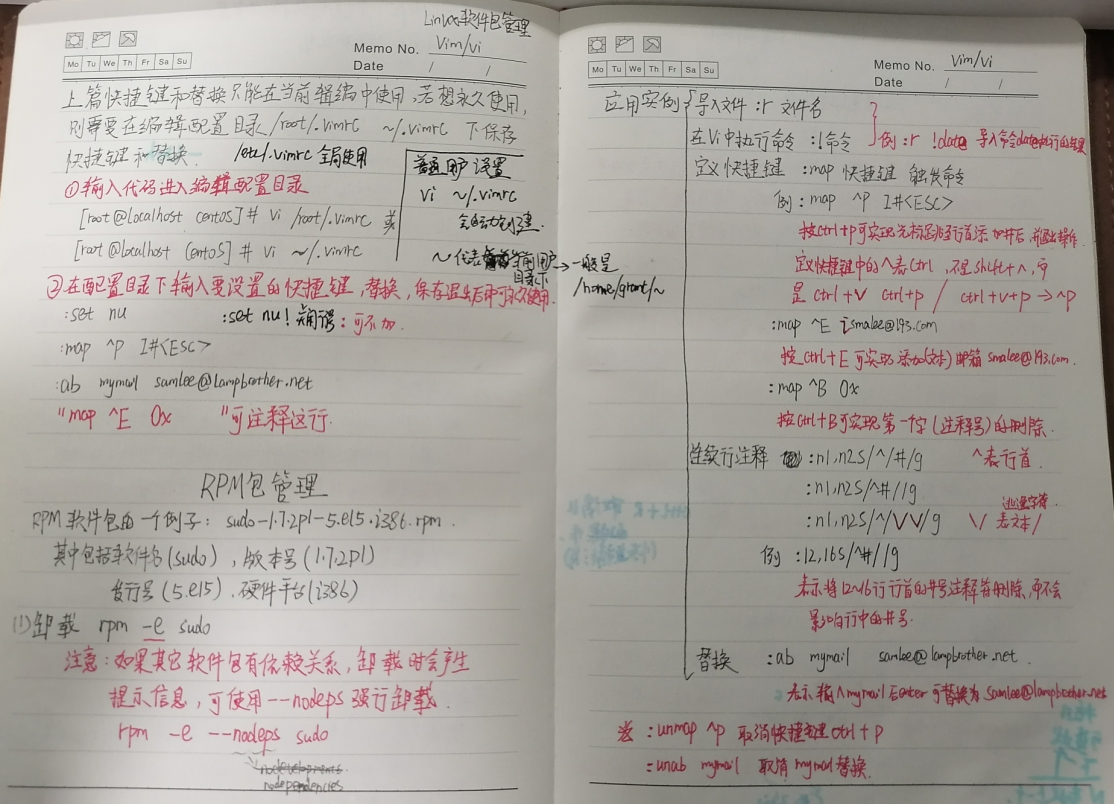 Linux软件包管理
Mo Tu We Th Fr Sa Su
Memo No. Vim/vi
Date / /
上篇快捷键和替换只能在当前辑编中使用,若想永久使用,
则需要在编辑配置目录/root/.vimrc ~/.vimrc 下保存
快捷键和替换. /etc/.vimrc 全局使用
①输入代码进入编辑配置目录
[root@localhost centos]# vi /root/.vimrc 或
[root@localhost CentoS]# vi ~/.vimrc
普通用户设置
vi ~/.vimrc
会自动创建.
~代表当前用户目录下 → 一般是
/home/grant/~
②在配置目录下输入要设置的快捷键,替换,保存退出后即可永久使用.
:set nu :set nu! 关闭 :可不加.
:map ^P I#<ESC>
:ab mymail samlee@lampbrother.net
"map ^E 0x "可注释这行.
RPM包管理
RPM软件包的一个例子: sudo-1.7.2p1-5.el5.i386.rpm.
其中包括软件名(sudo),版本号(1.7.2p1)
发行号(5.el5).硬件平台(i386)
(1)卸载 rpm -e sudo
注意:如果其它软件包有依赖关系,卸载时会产生
提示信息,可使用--nodeps强行卸载.
rpm -e --nodeps sudo
nodependencies
Mo Tu We Th Fr Sa Su
Memo No. Vim/vi
Date / /
应用实例 导入文件 :r 文件名
在Vi中执行命令 :!命令 例:r !date 导入命令date执行的结果
定义快捷键 :map 快捷键 触发命令
例 :map ^P I#<ESC>
按ctrl+p可实现光标在该行首添加井后,并退出操作.
定义快捷键中的^表ctrl,不是shift+^,而
是 ctrl+V ctrl+p / ctrl+v+p → ^p
:map ^E ismalee@193.com
按ctrl+E可实现添加(文本)邮箱smalee@193.com.
:map ^B 0x
按ctrl+B可实现第一个字(注释号)的删除.
连续行注释 :n1,n2s/^/#/g ^表行首.
:n1,n2s/^#//g
:n1,n2s/^/\/\//g \/ 表文本/
逃逸字符
例 :12,16s/^#//g
表示将12~16行行首的井号注释符删除,而不会
影响行中的井号.
替换 :ab mymail samlee@lampbrother.net.
表示输入mymail后enter可替换为samlee@lampbrother.net
:unmap ^p 取消快捷键ctrl+p
:unab mymail 取消mymail替换.